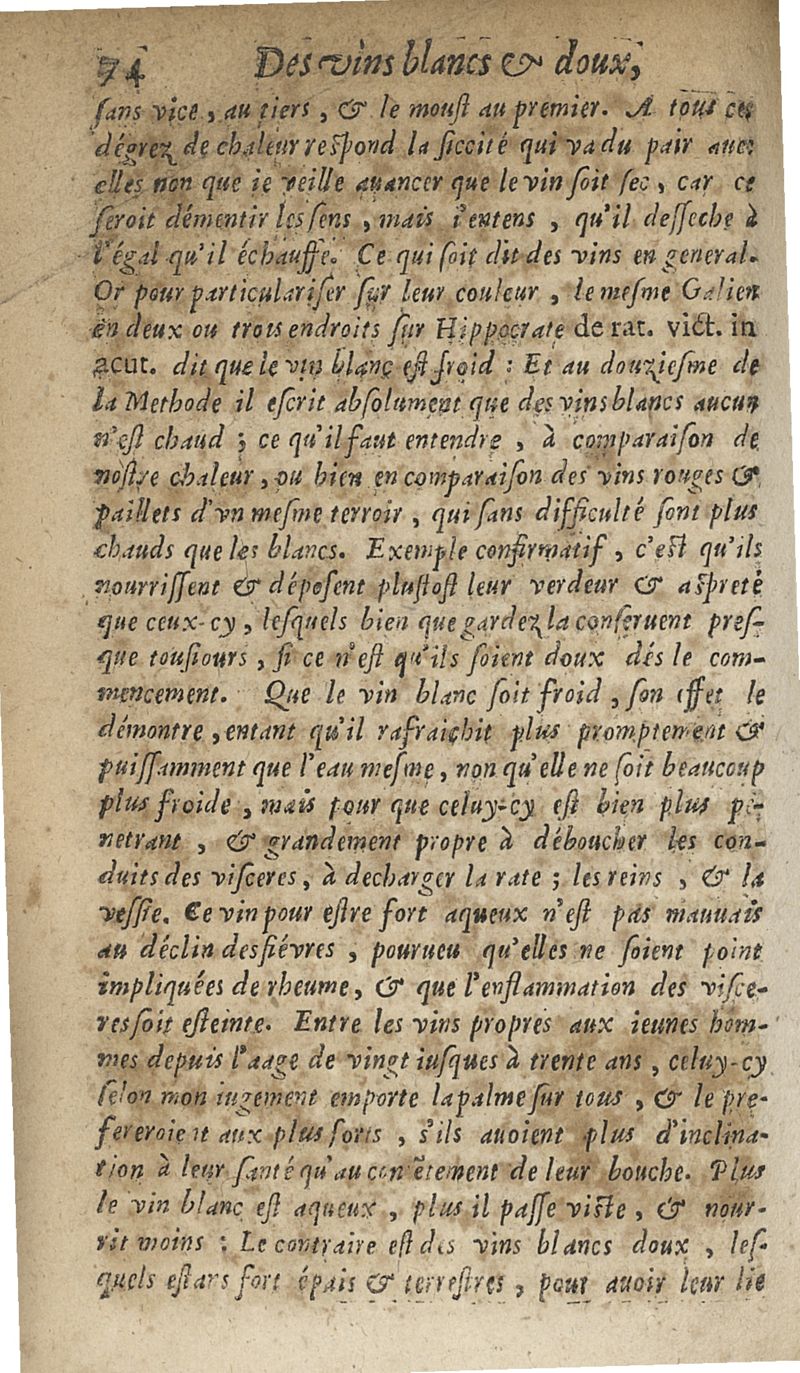 74 Des vins blancs & doux,
sans vice, au tiers, & le moust au premier. A tous ces
dégrez de chaleur respond la siccité qui va du pair auec
elles non que ie veille auancer que le vin soit sec, car ce
seroit démentir les sens, mais i'entens, qu'il desseche à
l'égal qu'il échauffe. Ce qui soit dit des vins en general.
Or pour particulariser sur leur couleur, le mesme Galien
en deux ou trois endroits sur Hippocrate de rat. vict. in
acut. dit que le vin blanc est froid : Et au douziesme de
la Methode il escrit absolument que des vins blancs aucun
n'est chaud ; ce qu'il faut entendre, à comparaison de
nostre chaleur, ou bien en comparaison des vins rouges &
paillets d'vn mesme terroir, qui sans difficulté sont plus
chauds que les blancs. Exemple confirmatif, c'est qu'ils
nourrissent & déposent plustost leur verdeur & aspreté
que ceux-cy, lesquels bien que gardez la conseruent pres-
que tousiours, si ce n'est qu'ils soient doux dés le com-
mencement. Que le vin blanc soit froid, son effet le
démontre, entant qu'il rafraichit plus promptement &
puissamment que l'eau mesme, non qu'elle ne soit beaucoup
plus froide, mais pour que celuy-cy est bien plus pe-
netrant, & grandement propre à déboucher les con-
duits des visceres, à decharger la rate ; les reins, & la
vessie. Ce vin pour estre fort aqueux n'est pas mauuais
au déclin des fiévres, pourueu qu'elles ne soient point
impliquées de rheume, & que l'enflammation des visce-
res soit esteinte. Entre les vins propres aux ieunes hom-
mes depuis l'aage de vingt iusques à trente ans, celuy-cy
selon mon iugement emporte la palme sur tous, & le pre-
fereroient aux plus forts, s'ils auoient plus d'inclina-
tion à leur santé qu'au contẽtement de leur bouche. Plus
le vin blanc est aqueux, plus il passe viste, & nour-
rit moins : Le contraire est des vins blancs doux, les-
quels estans fort épais & terrestres, pour auoir leur lie